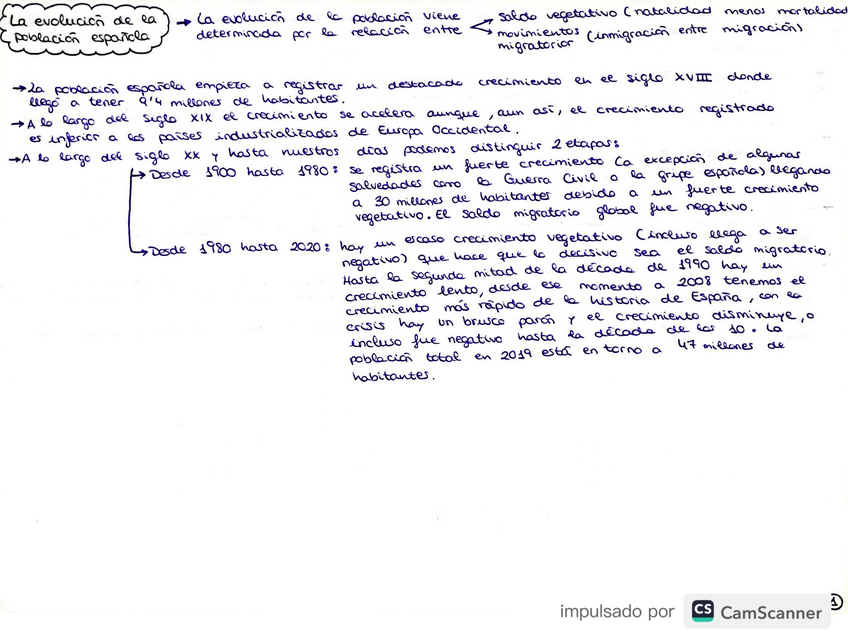 La evolución de la población española
→ La evolución de la población viene determinada por la relación entre
saldo vegetativo (natalidad menos mortalidad
movimientos (inmigración entre migración) migratorior
→ La población española empieza a registrar un destacado crecimiento en el siglo XVIII donde
llegó a tener 9'4 millones de habitantes.
→ A lo largo del siglo XIX el crecimiento se acelera aunque, aun así, el crecimiento registrado
es inferior a los países industrializados de Europa Occidental.
→ A lo largo del siglo XX y hasta nuestros días podemos distinguir 2 etapas:
→ Desde 1900 hasta 1980: se registra un fuerte crecimiento (a excepción de algunas
salvedades como la Guerra Civil o la gripe española) llegando
a 30 millones de habitantes debido a un fuerte crecimiento
vegetativo. El saldo migratorio global fue negativo.
→ Desde 1980 hasta 2020: hay un escaso crecimiento vegetativo (incluso llega a ser
negativo) que hace que lo decisivo sea el saldo migratorio.
Hasta la segunda mitad de la década de 1990 hay un
crecimiento lento, desde ese momento a 2008 tenemos el
crecimiento más rápido de la historia de España, con la
crisis hay un brusco parón y el crecimiento disminuye, o
incluso fue negativo hasta la década de los 10. La
población total en 2019 está en torno a 47 millones de
habitantes.
1
impulsado por CS CamScanner